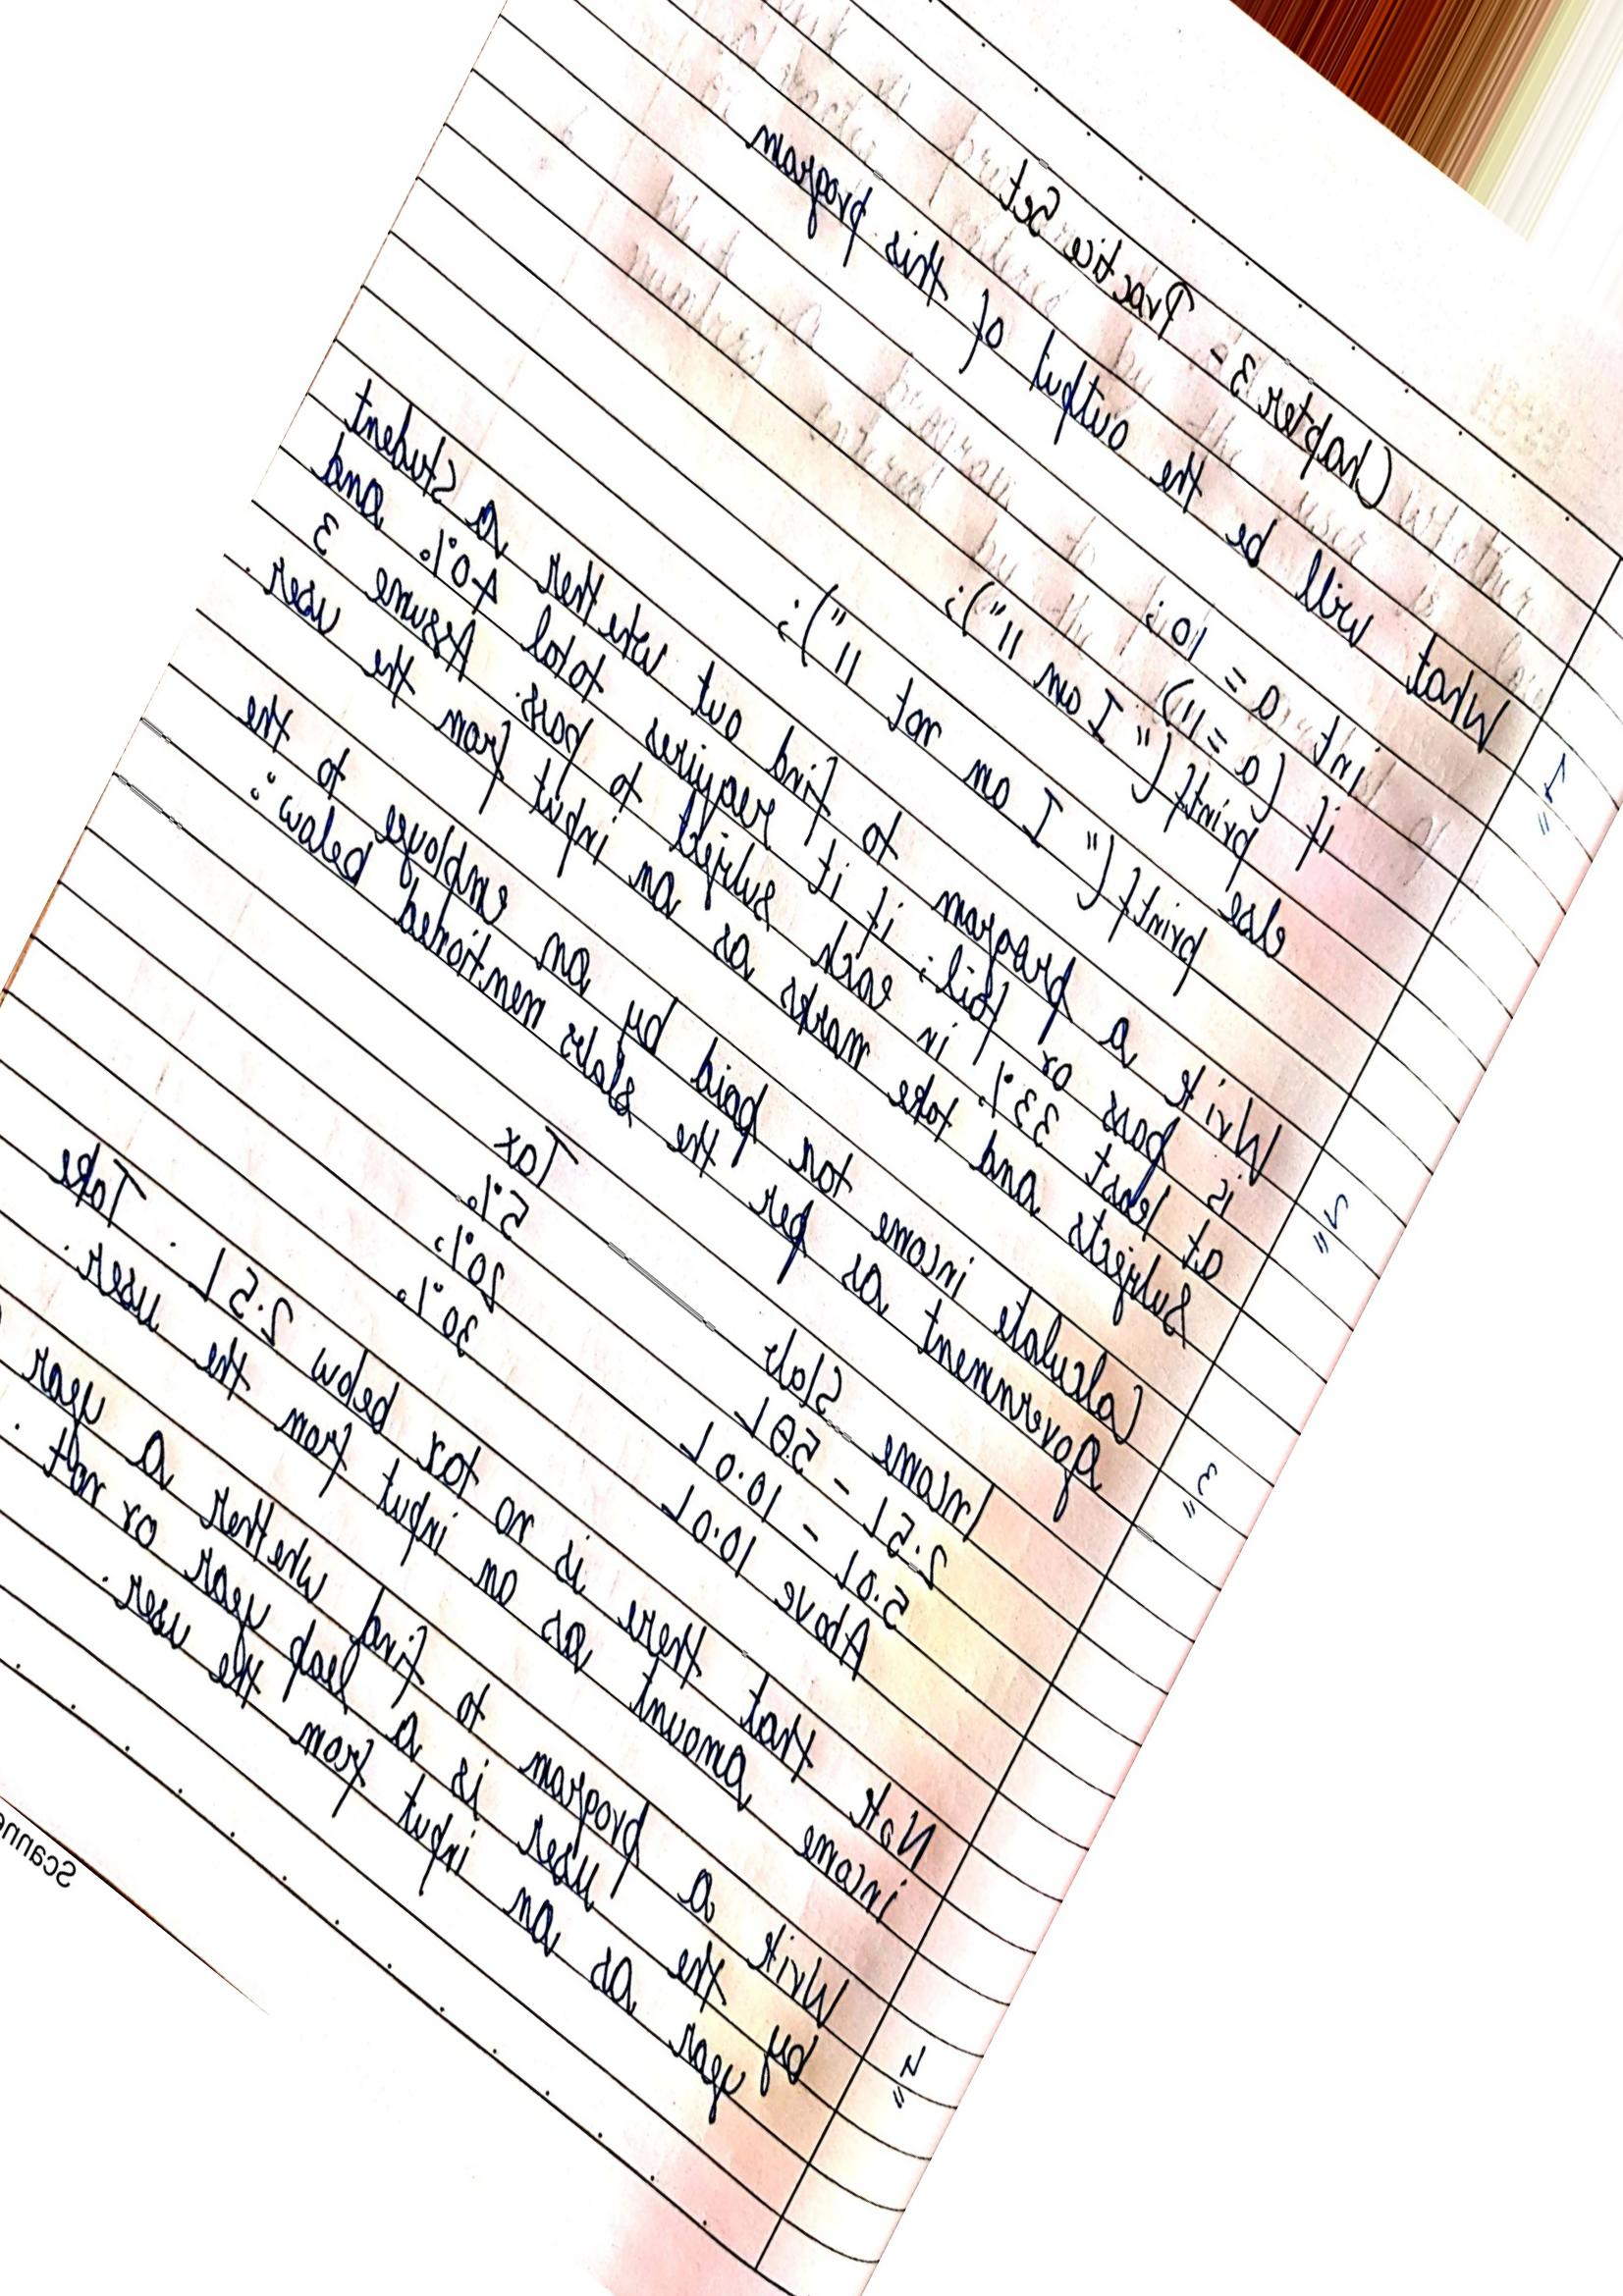 Chapter 3 - Practice Set
1= What will be the output of this program
int a = 10;
if (a = 11)
printf (" I am 11");
else
printf (" I am not 11");
2= Write a program to find out whether a student
is pass or fail; if it requires total 40% and
at least 33% in each subject to pass. Assume 3
Subjects and take marks as an input from the user.
3= Calculate income tax paid by an employe to the
government as per the slabs mentioned below:
Income Slab Tax
2.5L - 5.0L 5%
5.0L - 10.0L 20%
Above 10.0L 30%
Note that there is no tax below 2.5L. Take
income amount as an input from the user.
4= Write a program to find whether a year
by the user is a leap year or not.
year as an input from the user.
Scanne